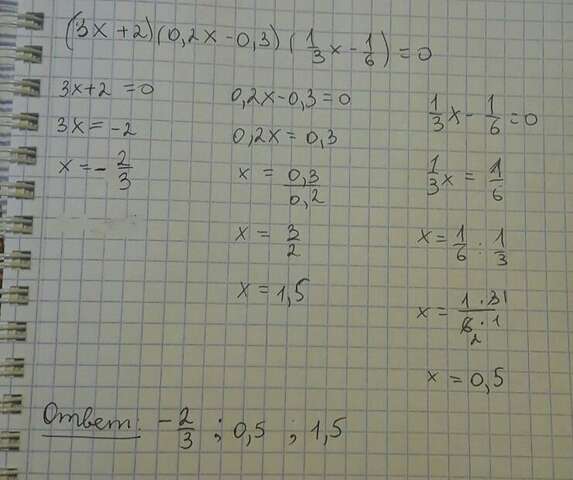 (3x+2)(0,2x-0,3)(1/3x-1/6)=0
3x+2=0
3x=-2
x=-2/3
0,2x-0,3=0
0,2x=0,3
x=0,3/0,2
x=3/2
x=1,5
1/3x-1/6=0
1/3x=1/6
x=1/6:1/3
x=1·3 1/6·1 2
x=0,5
Ответ: -2/3; 0,5; 1,5